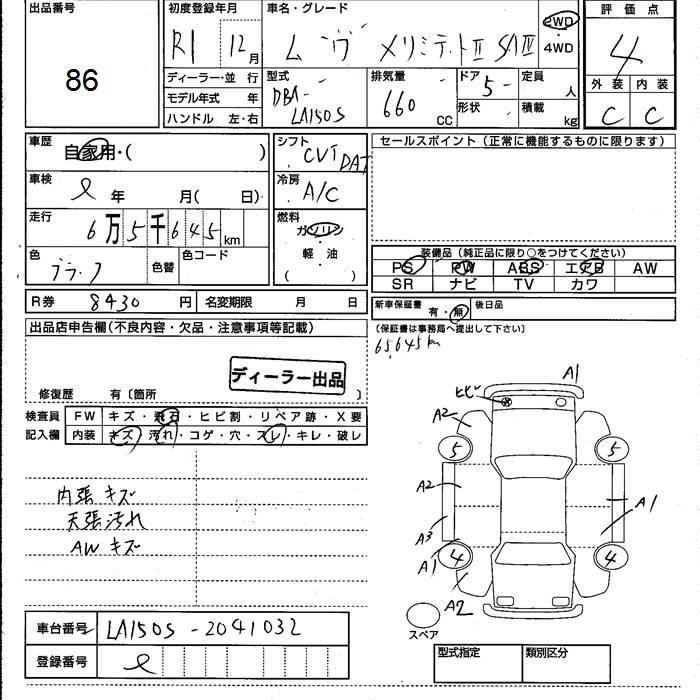 出品番号
86
初度登録年月
R1 12月
車名・グレード
ムーヴ メリミテットⅡ SAⅢ
2WD
・
4WD
評価点
4
外装 内装
C C
ディーラー・並 行
モデル年式 年
ハンドル 左・右
型式
DBA-
LA150S
排気量
660
CC
ドア
5-
形状
定員
人
積載
kg
車歴
自家用・( )
車検
年 月( 日)
走行
6万5千645km
色
ブラック
色替
色コード
シフト
CVT
DAT
冷房
A/C
燃料
ガソリン
・
軽・油
( )
セールスポイント (正常に機能するものに限ります)
装備品 (純正品に限り○をつけてください)
PS PW ABS エアB AW
SR ナビ TV カワ
R券 8430 円 名変期限 月 日
新車保証書 有・無 後日品
(保証書は事務局へ提出して下さい)
65,645km
出品店申告欄 (不良内容・欠品・注意事項等記載)
ディーラー出品
修復歴 有〔箇所 〕
検査員
記入欄
FW キズ・飛石・ヒビ割・リペア跡・X要
内装 キズ・汚れ・コゲ・穴・スレ・キレ・破レ
内張キズ
天張汚れ
AWキズ
A1
ヒビ
A2
5
5
A2
A1
A3
A1
4
4
A2
スペア
車台番号 LA150S-2041032
登録番号
型式指定 類別区分